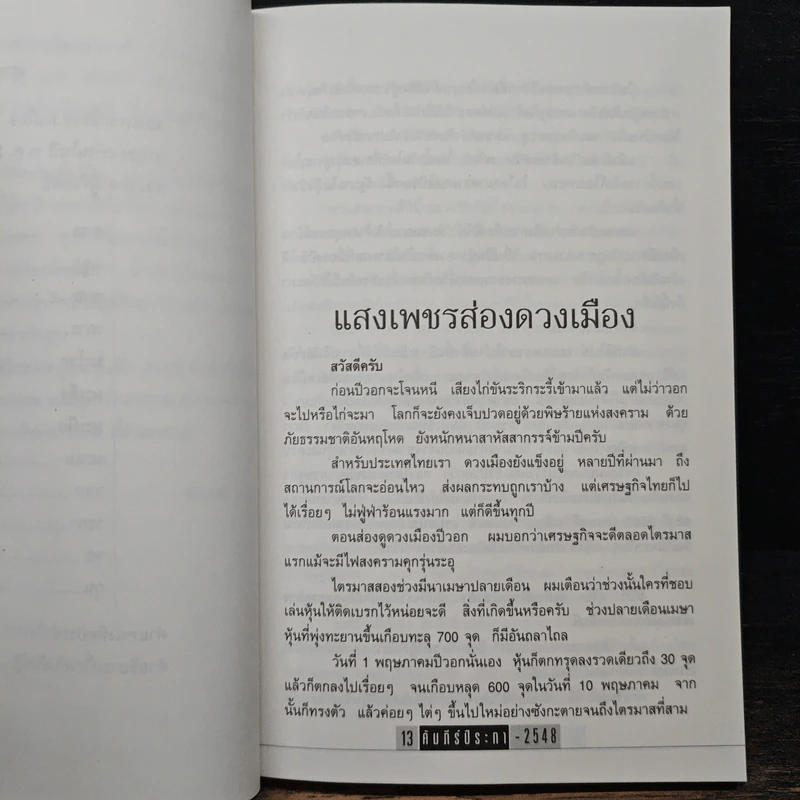 แสงเพชรส่องดวงเมือง
สวัสดีครับ
ก่อนปีวอกจะโจนหนี เสียงไก่ขันระริกระรี้เข้ามาแล้ว แต่ไม่ว่าวอก
จะไปหรือไก่จะมา โลกก็จะยังคงเจ็บปวดอยู่ด้วยพิษร้ายแห่งสงคราม ด้วย
ภัยธรรมชาติอันหฤโหด ยังหนักหนาสาหัสสากรรจ์ข้ามปีครับ
สำหรับประเทศไทยเรา ดวงเมืองยังแข็งอยู่ หลายปีที่ผ่านมา ถึง
สถานการณ์โลกจะอ่อนไหว ส่งผลกระทบถูกเราบ้าง แต่เศรษฐกิจไทยก็ไป
ได้เรื่อยๆ ไม่ฟู่ฟ่าร้อนแรงมาก แต่ก็ดีขึ้นทุกปี
ตอนส่องดูดวงเมืองปีวอก ผมบอกว่าเศรษฐกิจจะดีตลอดไตรมาส
แรกแม้จะมีไฟสงครามคุกรุ่นระอุ
ไตรมาสสองช่วงมีนาเมษาปลายเดือน ผมเตือนว่าช่วงนั้นใครที่ชอบ
เล่นหุ้นให้ติดเบรกไว้หน่อยจะดี สิ่งที่เกิดขึ้นหรือครับ ช่วงปลายเดือนเมษา
หุ้นที่พุ่งทะยานขึ้นเกือบทะลุ 700 จุด ก็มีอันถลาไถล
วันที่ 1 พฤษภาคมปีวอกนั่นเอง หุ้นก็ตกทรุดลงรวดเดียวถึง 30 จุด
แล้วก็ตกลงไปเรื่อยๆ จนเกือบหลุด 600 จุดในวันที่ 10 พฤษภาคม จาก
นั้นก็ทรงตัว แล้วค่อยๆ ไต่ๆ ขึ้นไปใหม่อย่างซังกะตายจนถึงไตรมาสที่สาม
13 คัมภีร์ปีระกา - 2548